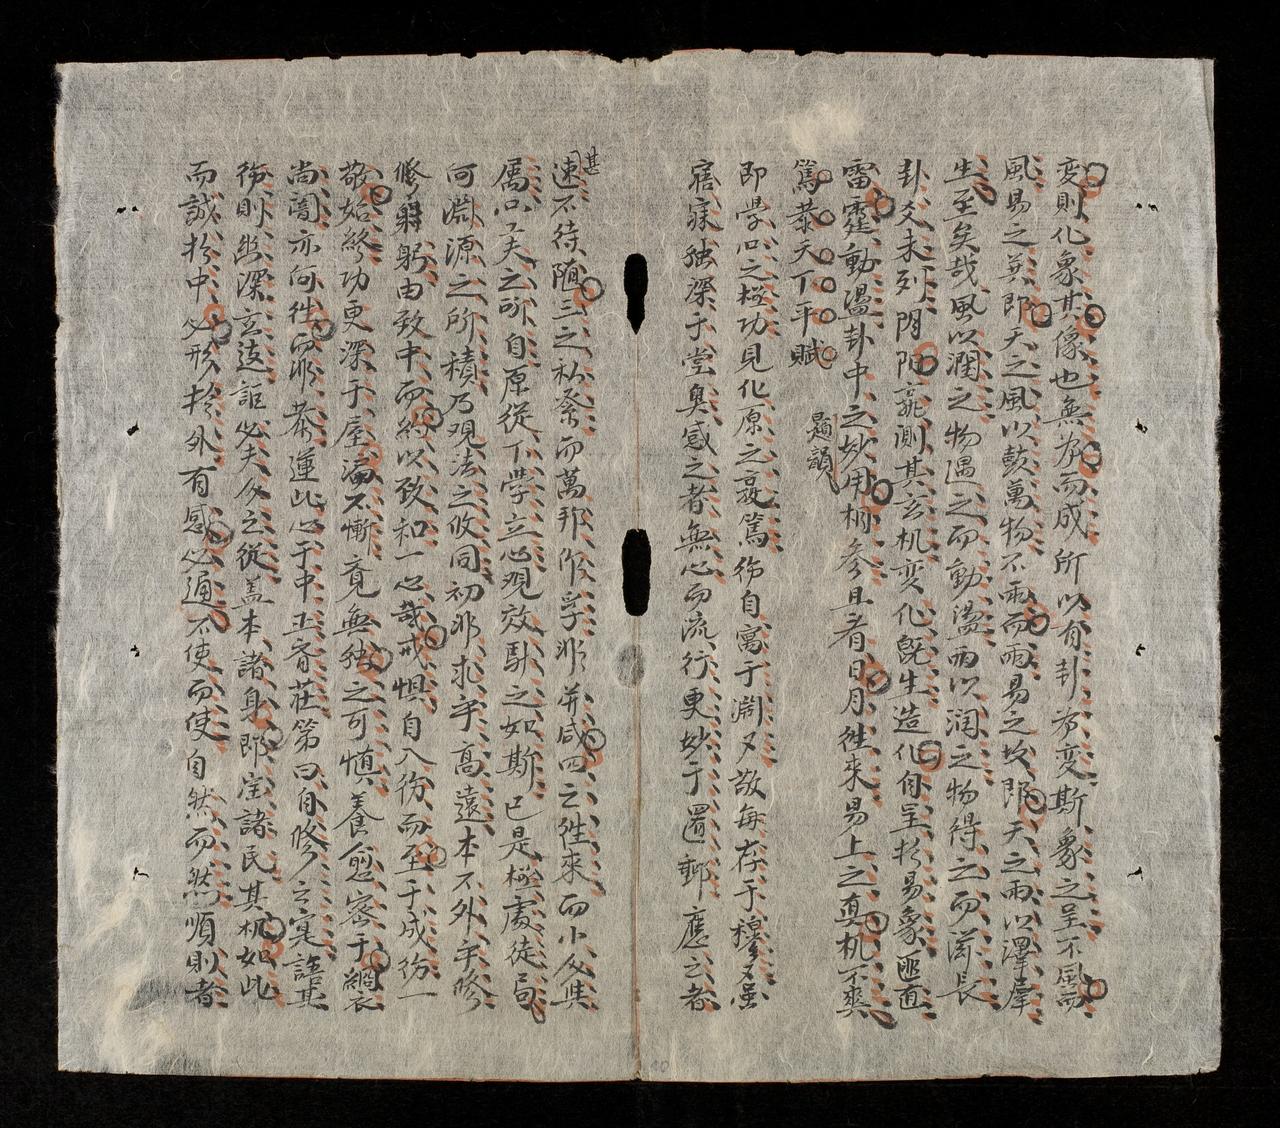 変則化象其像也無為而成所以有卦為変斯象之呈不風而
風易之 即天之風以鼓萬物不雨而雨易之 即天之雨以澤群
生至矣哉風以潤之物遇之而動盪雨以润之物得之而滋長
卦爻未列 阳 測其玄机変化既生造化自呈於易象匪直
雷霆動盪卦中之妙用相参且看日月徃来易上之真机不爽
篤恭天下平賦
題韻
即學心之極功見化原之 篤 自寓于淵又敬每存于穆又
寤寐独深于堂奥感之者無心而流行更妙于置郵應之者
速不待随三之私 而萬邦作孚非 咸四之徃来而小 
甚
属只 夫之所自原從下學立心現效駄之如斯已是極處徒局
何淵源之所積乃現法之攸同初非求乎高遠本不外乎修
修 躬由致中而約以致和一心哉戒惧自入 而至于成 一
敬始終功更深于屋漏不慚竟無独之可慎養愈密于絅衣
尚闇亦何徃而非恭運此心于中正斉荘第曰自修之寔 其
 則 深玄遠詎必夫人之從盖本諸身即宜諸民其机如此
而誠於中必形於外有感必通不使而使自然而然順則者